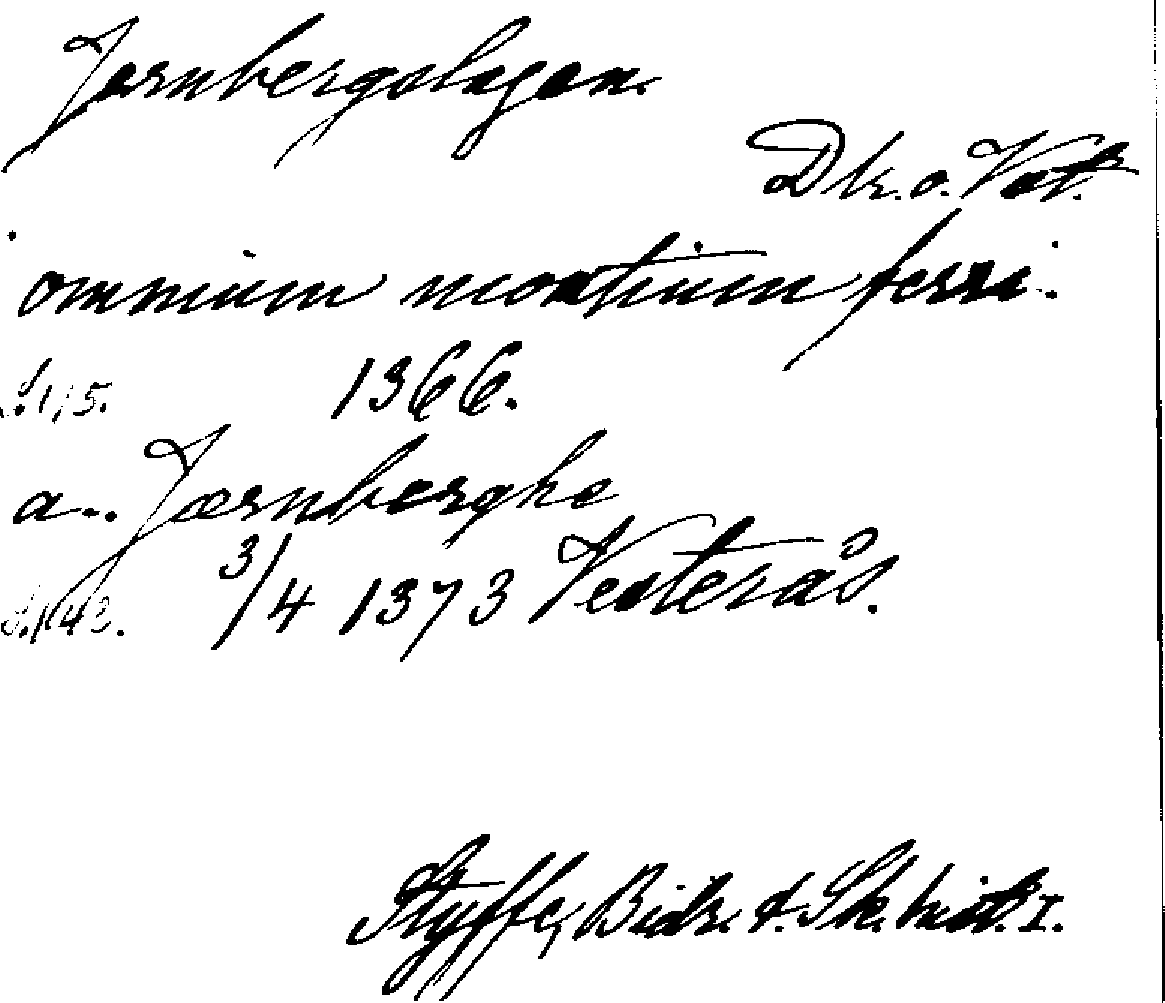 Jernbergslagen.
Dlr. o. Vstm.
omnium montium ferri.
S. 115. 1366.
a.. Jærnberghe
S. 142. 3/4 1373 Vesterås.
Styffe, Bidr. t. Sk. hist. I.